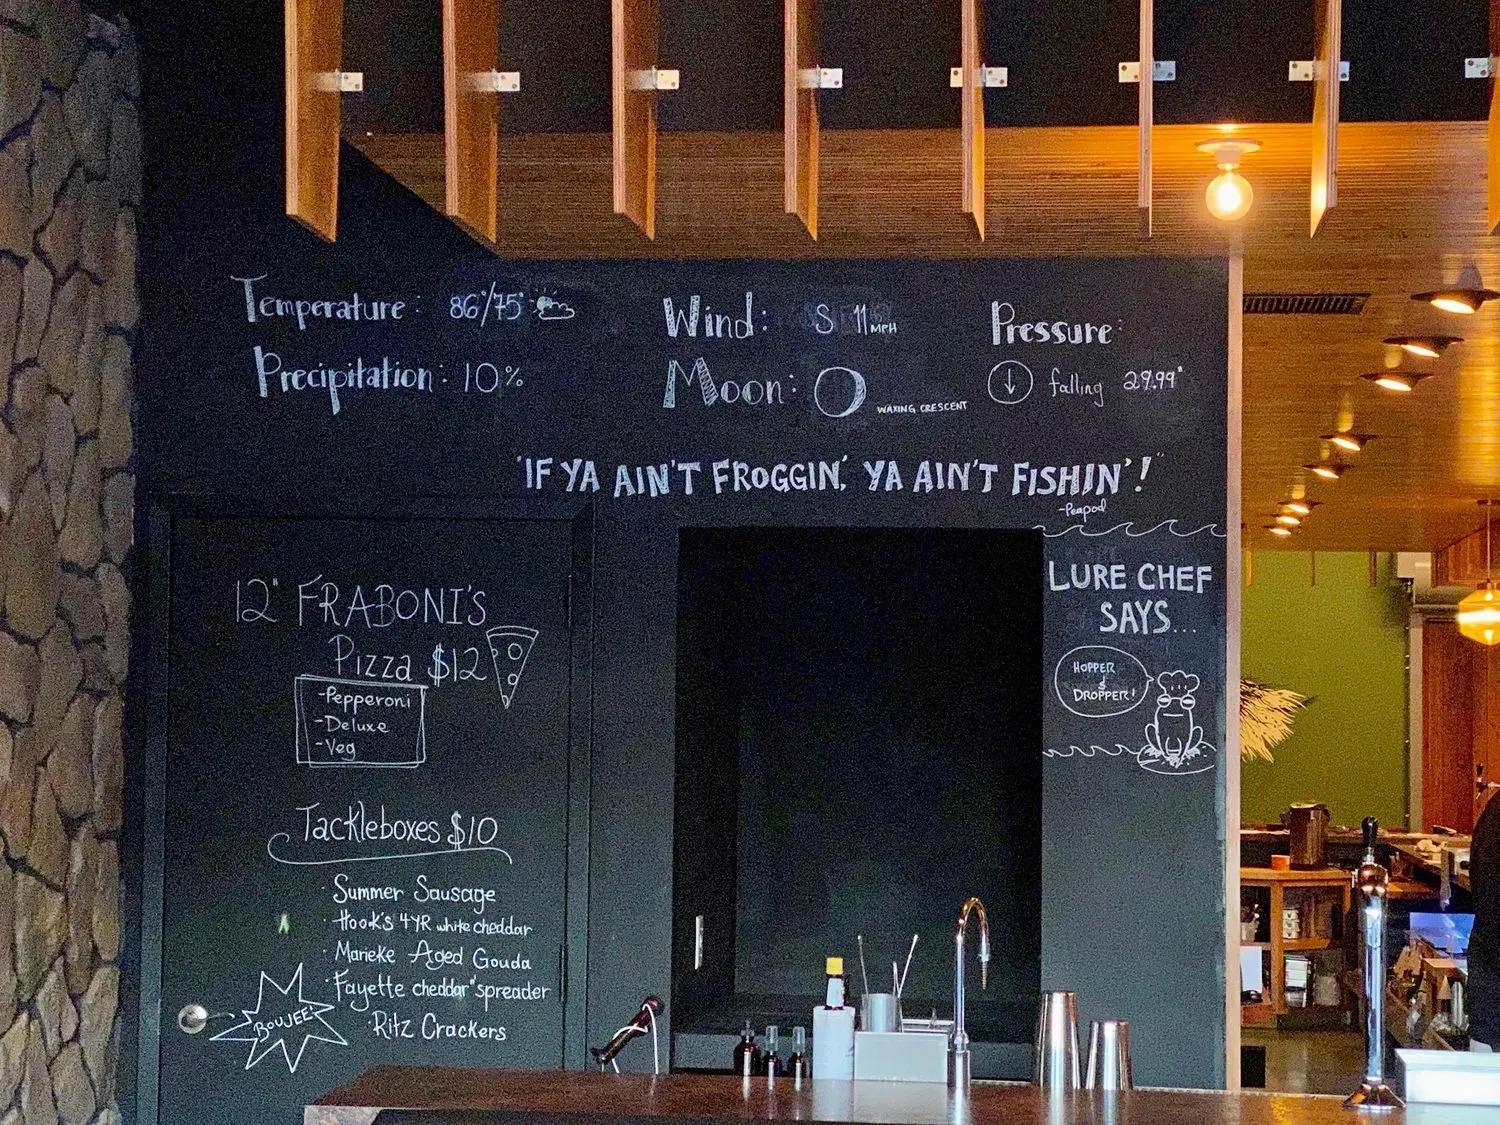 Temperature: 86°/75°
Precipitation: 10%
Wind: S 11 MPH
Moon: WAXING CRESCENT
Pressure:
falling 29.99"
"IF YA AIN'T FROGGIN', YA AIN'T FISHIN'!"
-Peapod
LURE CHEF
SAYS...
HOPPER
&
DROPPER!
12" FRABONI'S
Pizza $12
-Pepperoni
-Deluxe
-Veg
Tackleboxes $10
· Summer Sausage
· Hook's 4YR white cheddar
· Marieke Aged Gouda
· Fayette cheddar "spreader
· Ritz Crackers
BOUJEE!